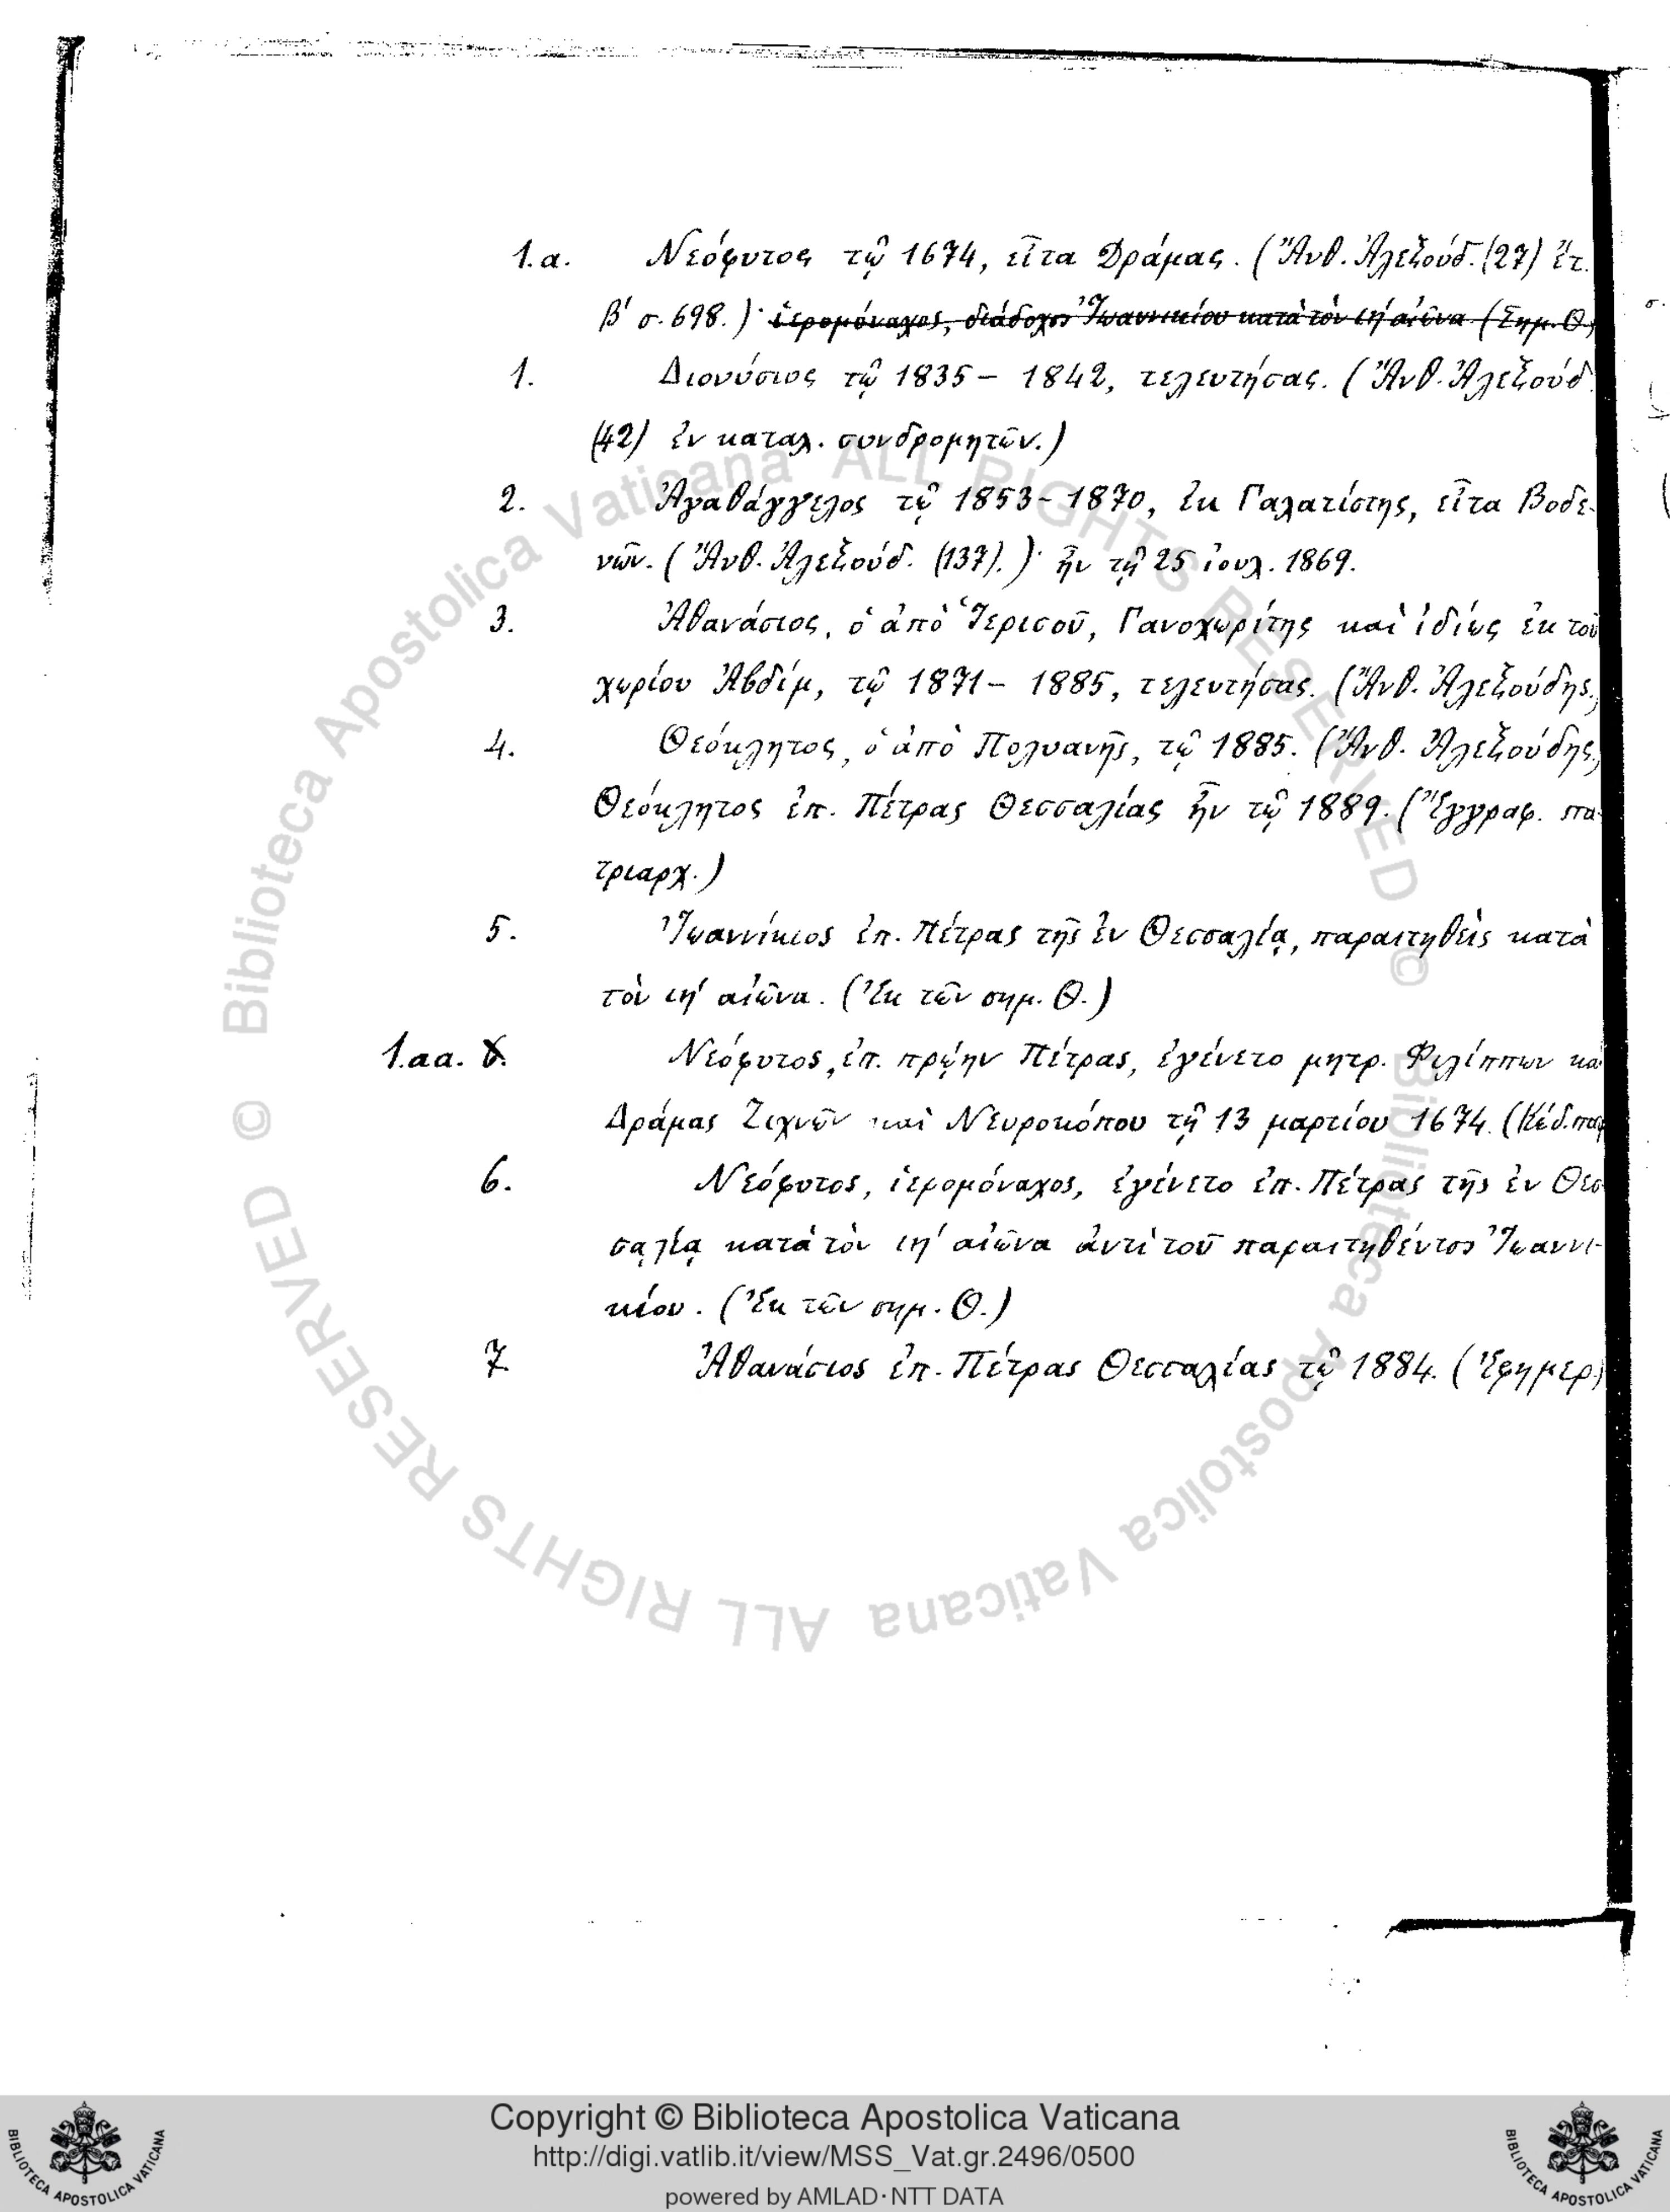 1.α. Νεόφυτος τῷ 1674, εἶτα Δράμας. (Ἄνθ. Ἀλεξούδ. (27) ἔτ.
β΄ σ. 698.)· ἱερομόναχος, διάδοχος Ἰωαννικίου κατὰ τὸν ιη΄ αἰῶνα (Σημ. Θ.)
1. Διονύσιος τῷ 1835 – 1842, τελευτήσας. (Ἄνθ. Ἀλεξούδ.
(42) ἐν καταλ. συνδρομητῶν.)
2. Ἀγαθάγγελος τῷ 1853 – 1870, ἐκ Γαλατίστης, εἶτα Βοδε-
νῶν. (Ἄνθ. Ἀλεξούδ. (137).)· ἦν τῇ 25 ἰουλ. 1869.
3. Ἀθανάσιος, ὁ ἀπὸ Ἱερισοῦ, Γανοχωρίτης καὶ ἰδίως ἐκ τοῦ
χωρίου Ἀβδίμ, τῷ 1871 – 1885, τελευτήσας. (Ἄνθ. Ἀλεξούδης.)
4. Θεόκλητος, ὁ ἀπὸ Πολυανῆς, τῷ 1885. (Ἄνθ. Ἀλεξούδης.)
Θεόκλητος ἐπ. Πέτρας Θεσσαλίας ἦν τῷ 1889. (Ἔγγραφ. πα-
τριαρχ.)
5. Ἰωαννίκιος ἐπ. Πέτρας τῆς ἐν Θεσσαλίᾳ, παραιτηθεὶς κατὰ
τὸν ιη΄ αἰῶνα. (Ἐκ τῶν σημ. Θ.)
1.αα. 6. Νεόφυτος, ἐπ. πρῴην Πέτρας, ἐγένετο μητρ. Φιλίππων κα
Δράμας Ζιχνῶν καὶ Νευροκόπου τῇ 13 μαρτίου 1674. (Κώδ. πατ
6. Νεόφυτος, ἱερομόναχος, ἐγένετο ἐπ. Πέτρας τῆς ἐν Θεσ-
σαλίᾳ κατὰ τὸν ιη΄ αἰῶνα ἀντὶ τοῦ παραιτηθέντος Ἰωαννι-
κίου. (Ἐκ τῶν σημ. Θ.)
7. Ἀθανάσιος ἐπ. Πέτρας Θεσσαλίας τῷ 1884. (Ἐφημερ.)
© Biblioteca Apostolica Vaticana ALL RIGHTS RESERVED © Biblioteca Apostolica Vaticana ALL RIGHTS RESERVED
Copyright © Biblioteca Apostolica Vaticana
http://digi.vatlib.it/view/MSS_Vat.gr.2496/0500
powered by AMLAD·NTT DATA
BIBLIOTECA APOSTOLICA VATICANA
BIBLIOTECA APOSTOLICA VATICANA